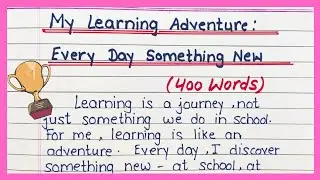 My Learning Adventure:
Every Day Something New
(400 Words)
Learning is a journey, not
just something we do in school.
For me, learning is like an
adventure. Every day, I discover
something new - at school, at